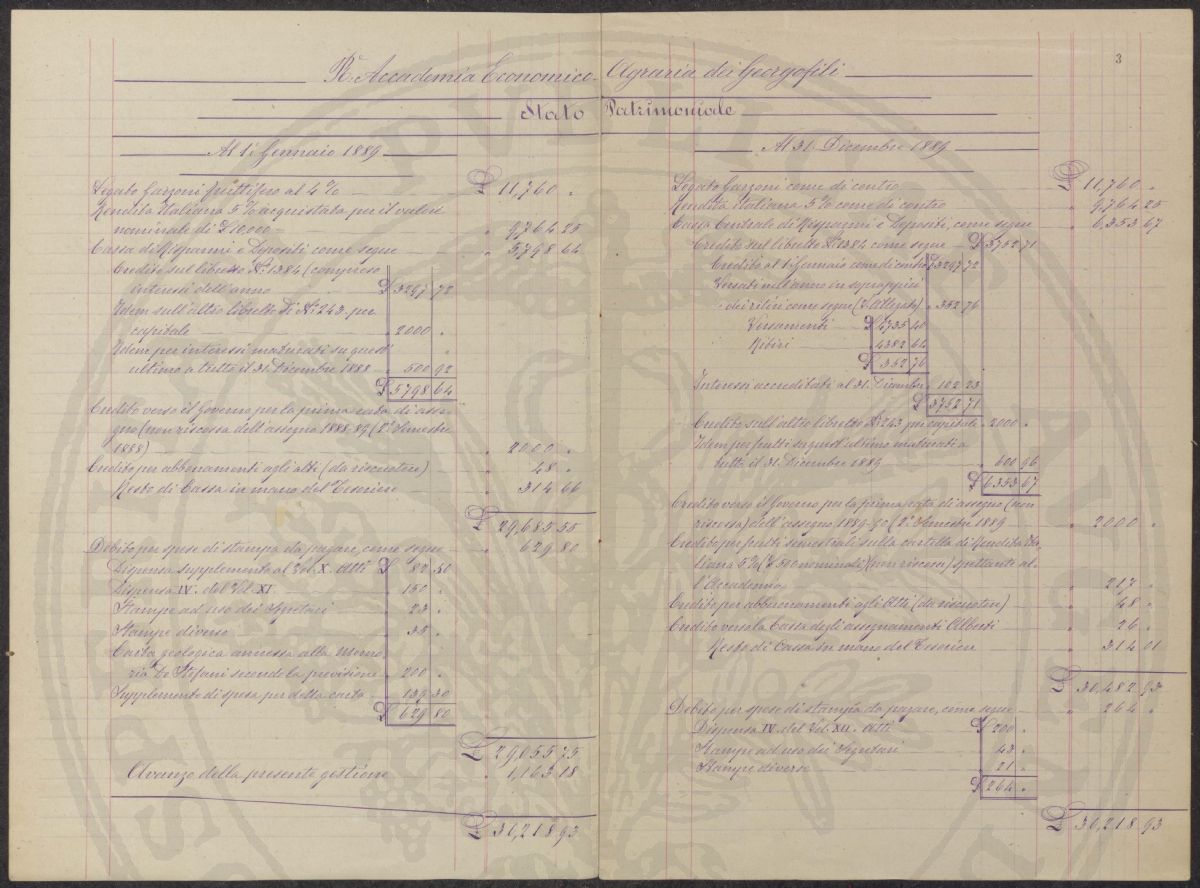 3
R. Accademia Economico-Agraria dei Georgofili
Stato Patrimoniale
Al 1º Gennaio 1889
Legato Garzoni fruttifero al 4% £ 11,760 "
Rendita Italiana 5% acquistata per il valore
nominale di £ 10000 = " 9,764 25
Cassa di Risparmi e Depositi come segue " 5,798 64
Credito sul libretto Nº 1384 (compreso
interessi dell'anno £ 3247 72
Idem sull'altro libretto di Nº 243 per
capitale " 2000 "
Idem per interessi maturati su quest'
ultimo a tutto il 31 Dicembre 1888 " 500 92
£ 5798 64
Credito verso il Governo per la prima rata di asse-
gno (non riscossa dell'assegno 1888-89 (2º Semestre
1888) " 2000 "
Credito per abbonamenti agli atti (da riscuotere) " 48 "
Resto di Cassa in mano del Tesoriere " 314 66
£ 29,685 55
Debito per spese di stampa da pagare, come segue " 629 80
Dispensa supplemento al Vol. X. Atti £ 82 50
Dispensa IV. del Vol. XI. " 150 "
Stampe ad uso dei Segretari " 23 "
Stampe diverse " 35 "
Carta geologica annessa alla Memo-
ria De Stefani secondo la previsione " 200 "
Supplemento di spesa per detta carta " 139 30
£ 629 80
£ 29,055 75
Avanzo della presente gestione " 1,163 18
£ 30,218 93
Al 31 Dicembre 1889
Legato Garzoni come di contro £ 11,760 "
Rendita Italiana 5% come di contro " 9,764 25
Cassa Centrale di Risparmi e Depositi, come segue " 6,353 67
Credito sul libretto Nº 1384 come segue £ 3752 71
Credito al 1 Gennaio come di contro £ 3247 72
Versati nell'anno in
dei ritiri come segue (Vº Allegato) " 352 76
Versamenti £ 4735 40
Ritiri " 4382 64
£ 352 76
Interessi accreditati al 31 Dicembre " 102 23
£ 3752 71
Credito sull'altro libretto Nº 243 per capitale " 2000 "
Idem per frutti su quest'ultimo maturati a
tutto il 31 Dicembre 1889 " 600 96
£ 6353 67
Credito verso il Governo per la prima rata di assegno (non
riscossa) dell'assegno 1889-90 (2º Semestre 1889 " 2000 "
Credito per frutti semestrali sulla cartella di Rendita Ita-
liana 5% (£ 500 nominali) (non riscossi) spettante al-
l'Accademia " 217 "
Credito per abbonamenti agli Atti (da riscuotere) " 48 "
Credito verso la Cassa degli assegnamenti Alberti " 26 "
Resto di Cassa in mano del Tesoriere " 314 01
£ 30,482 93
Debito per spese di stampa da pagare, come segue " 264 "
Dispensa IV. del Vol. XII. Atti £ 200 "
Stampe ad uso dei Segretari " 43 "
Stampe diverse " 21 "
£ 264 "
£ 30,218 93